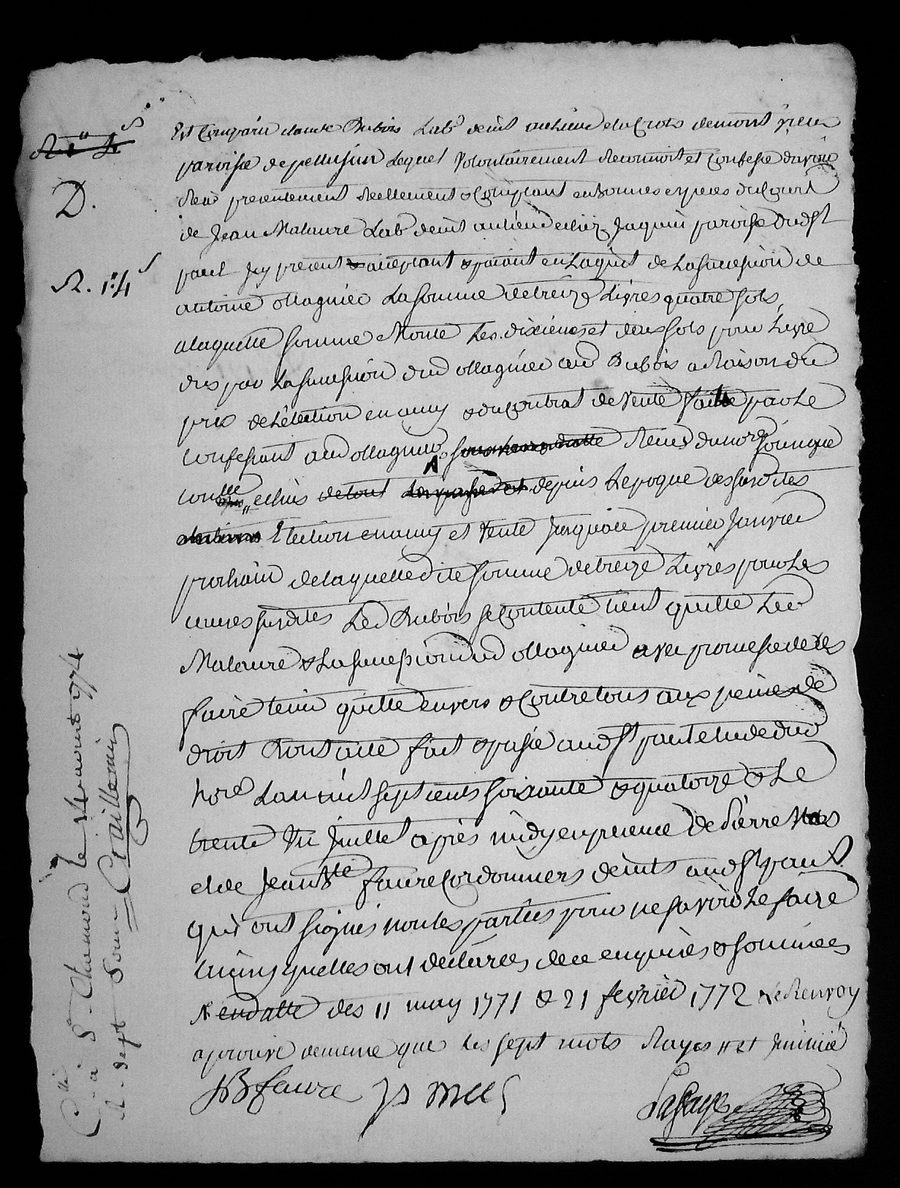 Est Comparu claude Dubois Lab.r demt au Lieu et
paroisse de pellussin Lequel volontairement Reconnoit et Confesse d'avoir
Receu presentement Reellement & Comptant en bonnes especes du Cours
de Jean Malaure Lab.r demt au Lieu de chez Jaquin paroisse dud St
paul Icy present & aceptant & paiant en Laquit de La sucession de
antoine ollagnier La somme de treize Livres quatre sols
a laquelle somme Monte Les dixiemes et deux sols pour Livre
dus par La sucession dud ollagnier aud Dubois a Raison du
prix de L'election en amy & du Contrat de vente faitte par Le
Confessant aud ollagnier Receus du nore
echus depuis L'epoque des susdites
Election en amy et vente Jusqu'au premier Janvier
prochain de laquelle dite somme de treize Livres pour Les
causes susdites Led Dubois se contente tient quitte Led
Malaure & La sucession dud ollagnier avec promesse de les
faire tenir quitte envers & Contre tous aux peines de
droit Dont acte fait & passé aud St paul etude dud
nore L'an mil sept cents soixante & quatorze & Le
trente un Juillet après midy en presence de Pierre
et de Jean Bte faure Cordonniers demts aud St paul
qui ont signés non les parties pour ne savoir Le faire
ainsy qu'elles ont déclarées de ce enquises & sommées
A en datte des 11 may 1771 & 21 fevrier 1772 Le Renvoy
aprouvé de meme que les sept mots Rayes
JB faure
Lafaye
R. 1# 4s
D.
R. 1# 4s
C.lle à St Chamond le août 1774
R. sept sous